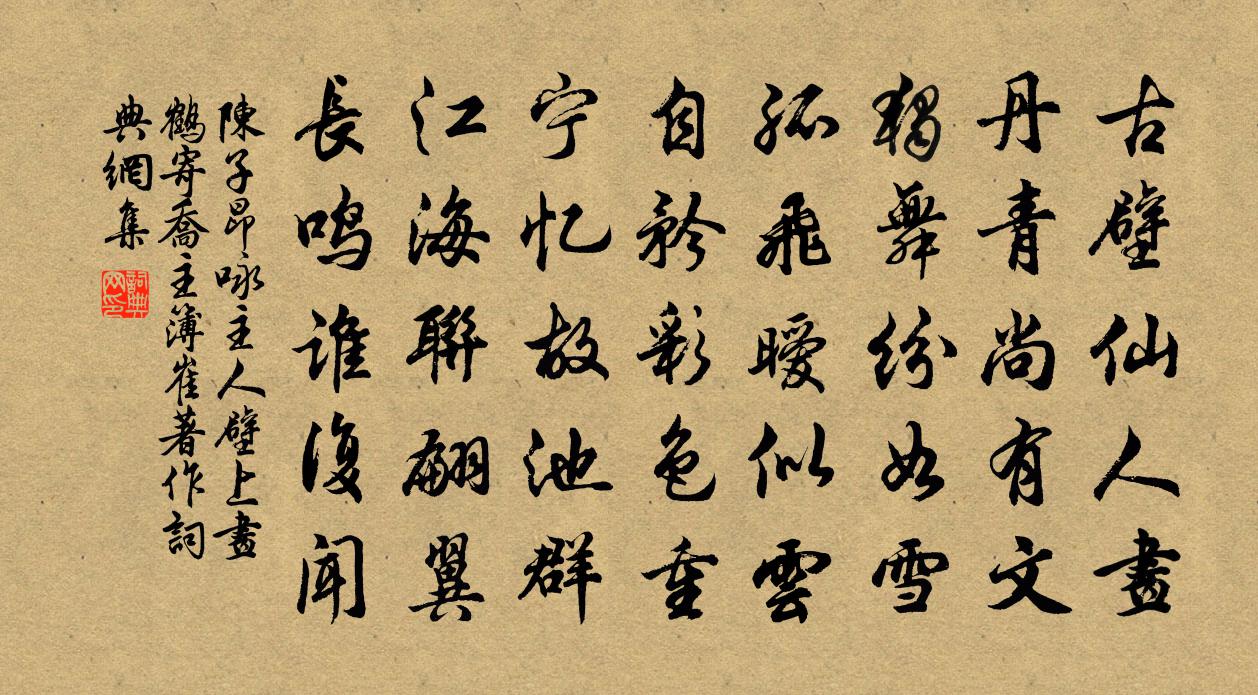 古壁仙人畫
丹青尚有文
獨舞紛如雪
孤飛曖似雲
自矜彩色重
宁忆故池群
江海聯翩翼
長鳴谁復闻
陳子昂咏主人壁上畫
鶴寄喬主簿崔著作詞
典網集
詞典
网印